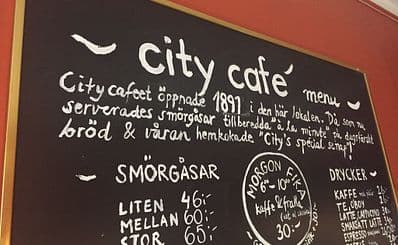 city café
menu
City cafeet öppnade 1891 i den här lokalen. Då som nu
serverades smörgåsar tillbéredda "a la minute" på dagsfärskt
bröd & våran hemkokade "City's spécial senap"!
SMÖRGÅSAR
LITEN 46:-
MELLAN 60:-
STOR 65:-
MORGON FIKA
6°° - 10°°
kaffe & fralla
30:-
DRYCKER
KAFFE
TE, OBOY
LATTE, CAPPUCINO
SMAKSATT LATTE
ESPRESSO